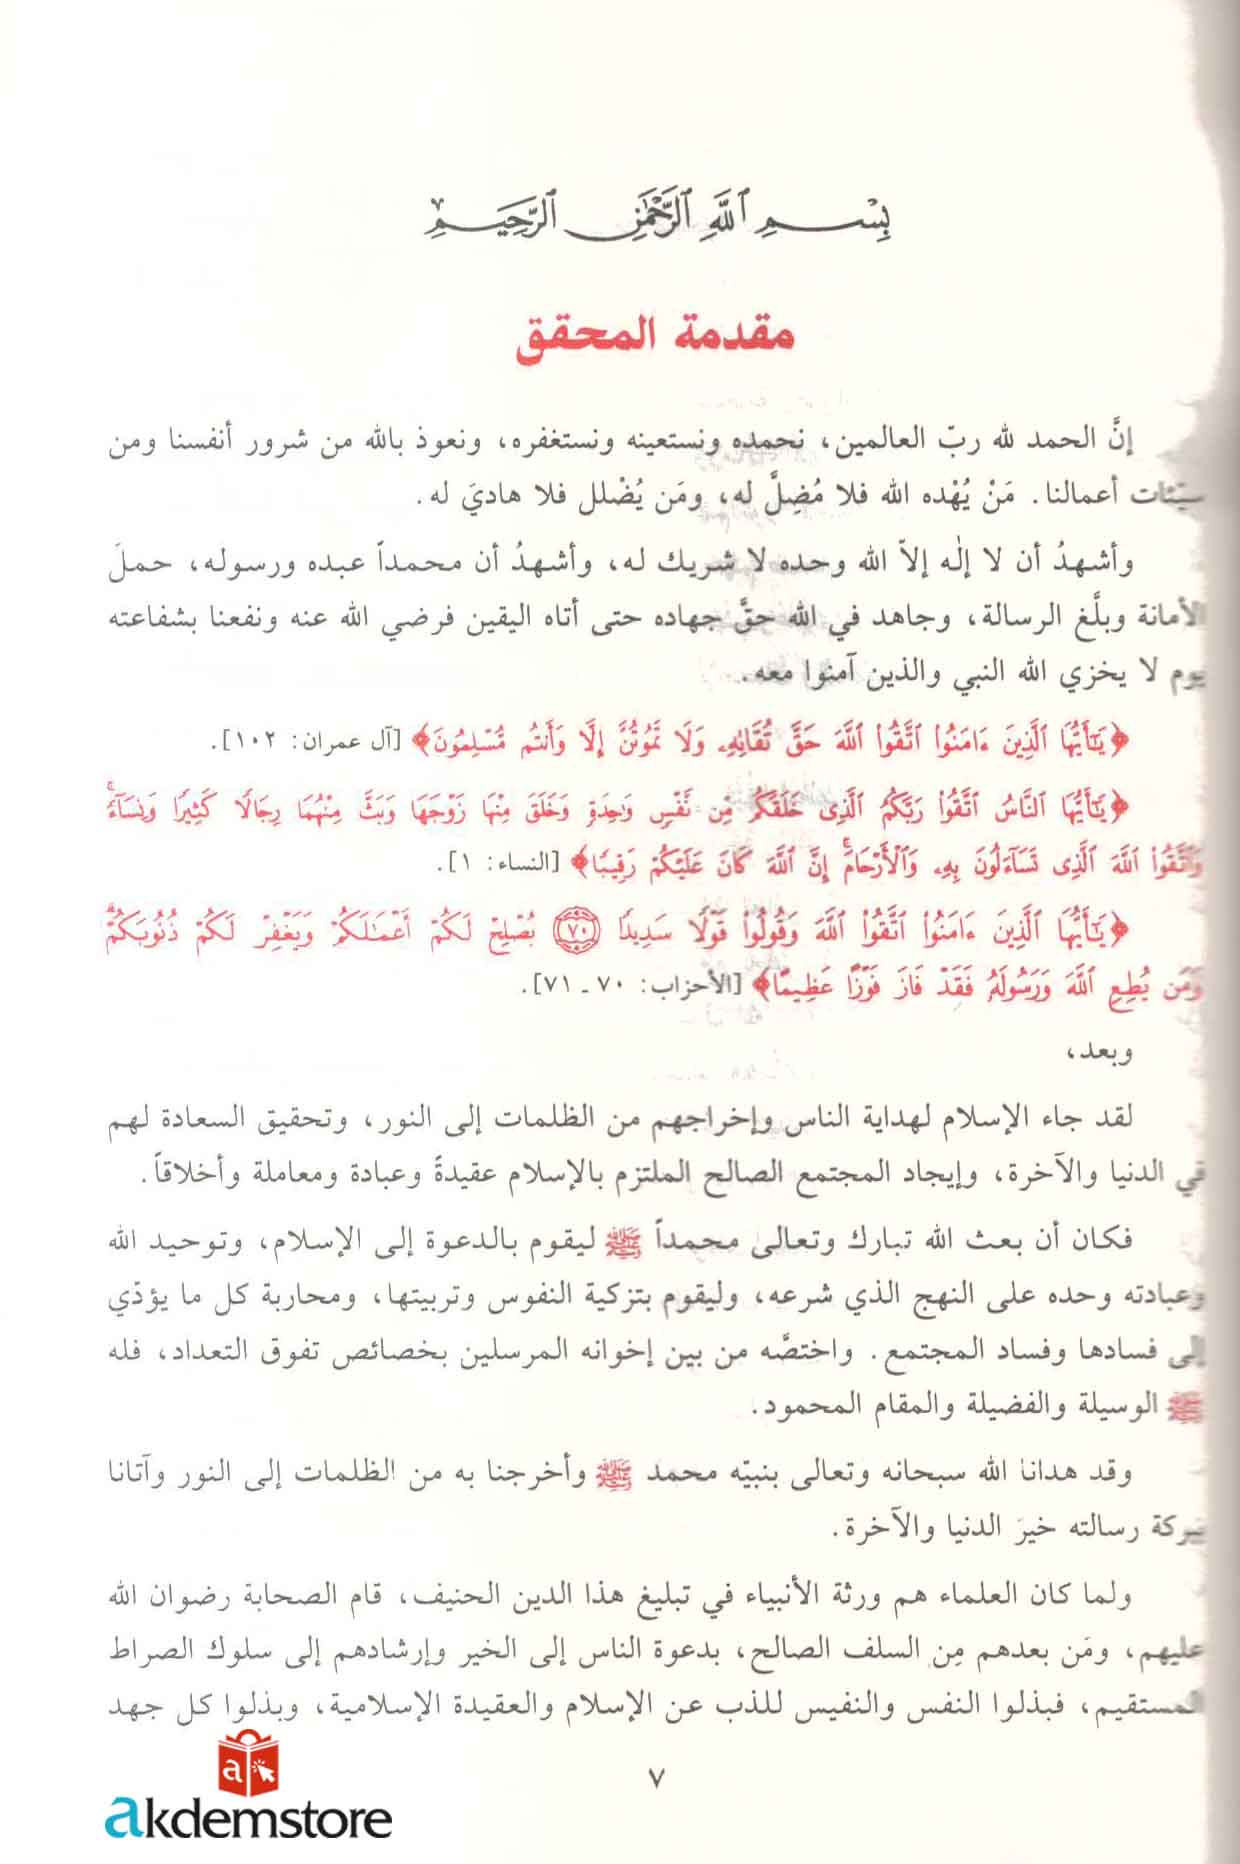 بِسْمِ ٱللَّهِ ٱلرَّحْمَٰنِ ٱلرَّحِيمِ
مقدمة المحقق
إنَّ الحمد لله ربّ العالمين، نحمده ونستعينه ونستغفره، ونعوذ بالله من شرور أنفسنا ومن
سيّئات أعمالنا. مَنْ يُهْده الله فلا مُضِلَّ له، ومَن يُضْلل فلا هاديَ له.
وأشهدُ أن لا إلٰه إلاّ الله وحده لا شريك له، وأشهدُ أن محمداً عبده ورسوله، حملَ
الأمانة وبلَّغ الرسالة، وجاهد في الله حقَّ جهاده حتى أتاه اليقين فرضي الله عنه ونفعنا بشفاعته
يوم لا يخزي الله النبي والذين آمنوا معه.
﴿يَٰٓأَيُّهَا ٱلَّذِينَ ءَامَنُوا۟ ٱتَّقُوا۟ ٱللَّهَ حَقَّ تُقَاتِهِۦ وَلَا تَمُوتُنَّ إِلَّا وَأَنتُم مُّسْلِمُونَ﴾ [آل عمران: ١٠٢].
﴿يَٰٓأَيُّهَا ٱلنَّاسُ ٱتَّقُوا۟ رَبَّكُمُ ٱلَّذِى خَلَقَكُم مِّن نَّفْسٍ وَٰحِدَةٍ وَخَلَقَ مِنْهَا زَوْجَهَا وَبَثَّ مِنْهُمَا رِجَالًا كَثِيرًا وَنِسَآءً ۚ
وَٱتَّقُوا۟ ٱللَّهَ ٱلَّذِى تَسَآءَلُونَ بِهِۦ وَٱلْأَرْحَامَ ۚ إِنَّ ٱللَّهَ كَانَ عَلَيْكُمْ رَقِيبًا﴾ [النساء: ١].
﴿يَٰٓأَيُّهَا ٱلَّذِينَ ءَامَنُوا۟ ٱتَّقُوا۟ ٱللَّهَ وَقُولُوا۟ قَوْلًا سَدِيدًا ۝٧٠ يُصْلِحْ لَكُمْ أَعْمَٰلَكُمْ وَيَغْفِرْ لَكُمْ ذُنُوبَكُمْ ۗ
وَمَن يُطِعِ ٱللَّهَ وَرَسُولَهُۥ فَقَدْ فَازَ فَوْزًا عَظِيمًا﴾ [الأحزاب: ٧٠ ـ ٧١].
وبعد،
لقد جاء الإسلام لهداية الناس وإخراجهم من الظلمات إلى النور، وتحقيق السعادة لهم
في الدنيا والآخرة، وإيجاد المجتمع الصالح الملتزم بالإسلام عقيدةً وعبادة ومعاملة وأخلاقاً.
فكان أن بعث الله تبارك وتعالى محمداً ﷺ ليقوم بالدعوة إلى الإسلام، وتوحيد الله
وعبادته وحده على النهج الذي شرعه، وليقوم بتزكية النفوس وتربيتها، ومحاربة كل ما يؤدّي
إلى فسادها وفساد المجتمع. واختصَّه من بين إخوانه المرسلين بخصائص تفوق التعداد، فله
ﷺ الوسيلة والفضيلة والمقام المحمود.
وقد هدانا الله سبحانه وتعالى بنبيّه محمد ﷺ وأخرجنا به من الظلمات إلى النور وآتانا
ببركة رسالته خيرَ الدنيا والآخرة.
ولما كان العلماء هم ورثة الأنبياء في تبليغ هذا الدين الحنيف، قام الصحابة رضوان الله
عليهم، ومَن بعدهم مِن السلف الصالح، بدعوة الناس إلى الخير وإرشادهم إلى سلوك الصراط
المستقيم، فبذلوا النفس والنفيس للذب عن الإسلام والعقيدة الإسلامية، وبذلوا كل جهد
٧
a
akdemstore